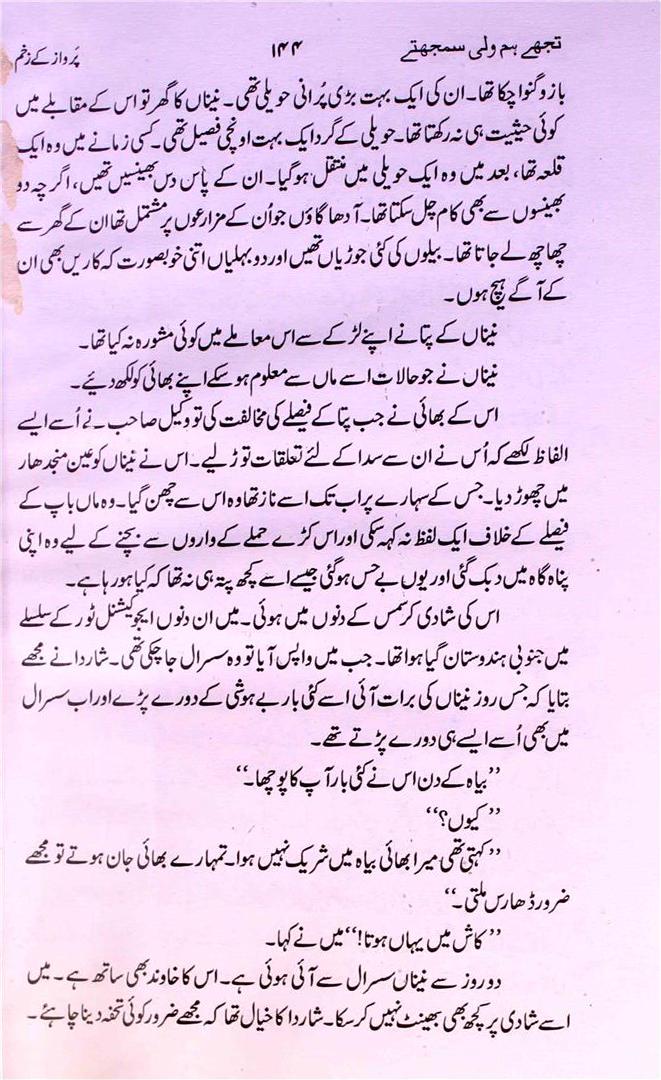 تجھے ہم ولی سمجھتے ۱۴۴ پرواز کے زخم
بازو گنوا چکا تھا۔ ان کی ایک بہت بڑی پُرانی حویلی تھی۔ نیناں کا گھر تو اس کے مقابلے میں
کوئی حیثیت ہی نہ رکھتا تھا۔ حویلی کے گرد ایک بہت اونچی فصیل تھی۔ کسی زمانے میں وہ ایک
قلعہ تھا، بعد میں وہ ایک حویلی میں منتقل ہو گیا۔ ان کے پاس دس بھینسیں تھیں، اگرچہ دو
بھینسوں سے بھی کام چل سکتا تھا۔ آدھا گاؤں جو اُن کے مزارعوں پر مشتمل تھا ان کے گھر سے
چھاچھ لے جاتا تھا۔ بیلوں کی کئی جوڑیاں تھیں اور دو بہلیاں اتنی خوبصورت کہ کاریں بھی ان
کے آگے ہیچ ہوں۔
نیناں کے پتا نے اپنے لڑکے سے اس معاملے میں کوئی مشورہ نہ کیا تھا۔
نیناں نے جو حالات اسے ماں سے معلوم ہو سکے اپنے بھائی کو لکھ دیئے۔
اس کے بھائی نے جب پتا کے فیصلے کی مخالفت کی تو وکیل صاحب نے اُسے ایسے
الفاظ لکھے کہ اُس نے ان سے سدا کے لئے تعلقات توڑ لیے۔ اس نے نیناں کو عین منجدھار
میں چھوڑ دیا۔ جس کے سہارے پر اب تک اسے ناز تھا وہ اس سے چھن گیا۔ وہ ماں باپ کے
فیصلے کے خلاف ایک لفظ نہ کہہ سکی اور اس کڑے حملے کے واروں سے بچنے کے لیے وہ اپنی
پناہ گاہ میں دبک گئی اور یوں بے حس ہو گئی جیسے اسے کچھ پتہ ہی نہ تھا کہ کیا ہو رہا ہے۔
اس کی شادی کرسمس کے دنوں میں ہوئی۔ میں ان دنوں ایجوکیشنل ٹور کے سلسلے
میں جنوبی ہندوستان گیا ہوا تھا۔ جب میں واپس آیا تو وہ سسرال جا چکی تھی۔ شاردا نے مجھے
بتایا کہ جس روز نیناں کی برات آئی اسے کئی بار بے ہوشی کے دورے پڑے اور اب سسرال
میں بھی اُسے ایسے ہی دورے پڑتے تھے۔
’’بیاہ کے دن اس نے کئی بار آپ کا پوچھا۔‘‘
’’کیوں؟‘‘
’’کہتی تھی میرا بھائی بیاہ میں شریک نہیں ہوا۔ تمہارے بھائی جان ہوتے تو مجھے
ضرور ڈھارس ملتی۔‘‘
’’کاش میں یہاں ہوتا!‘‘ میں نے کہا۔
دو روز سے نیناں سسرال سے آئی ہوئی ہے۔ اس کا خاوند بھی ساتھ ہے۔ میں
اسے شادی پر کچھ بھی بھینٹ نہیں کر سکا۔ شاردا کا خیال تھا کہ مجھے ضرور کوئی تحفہ دینا چاہئے۔